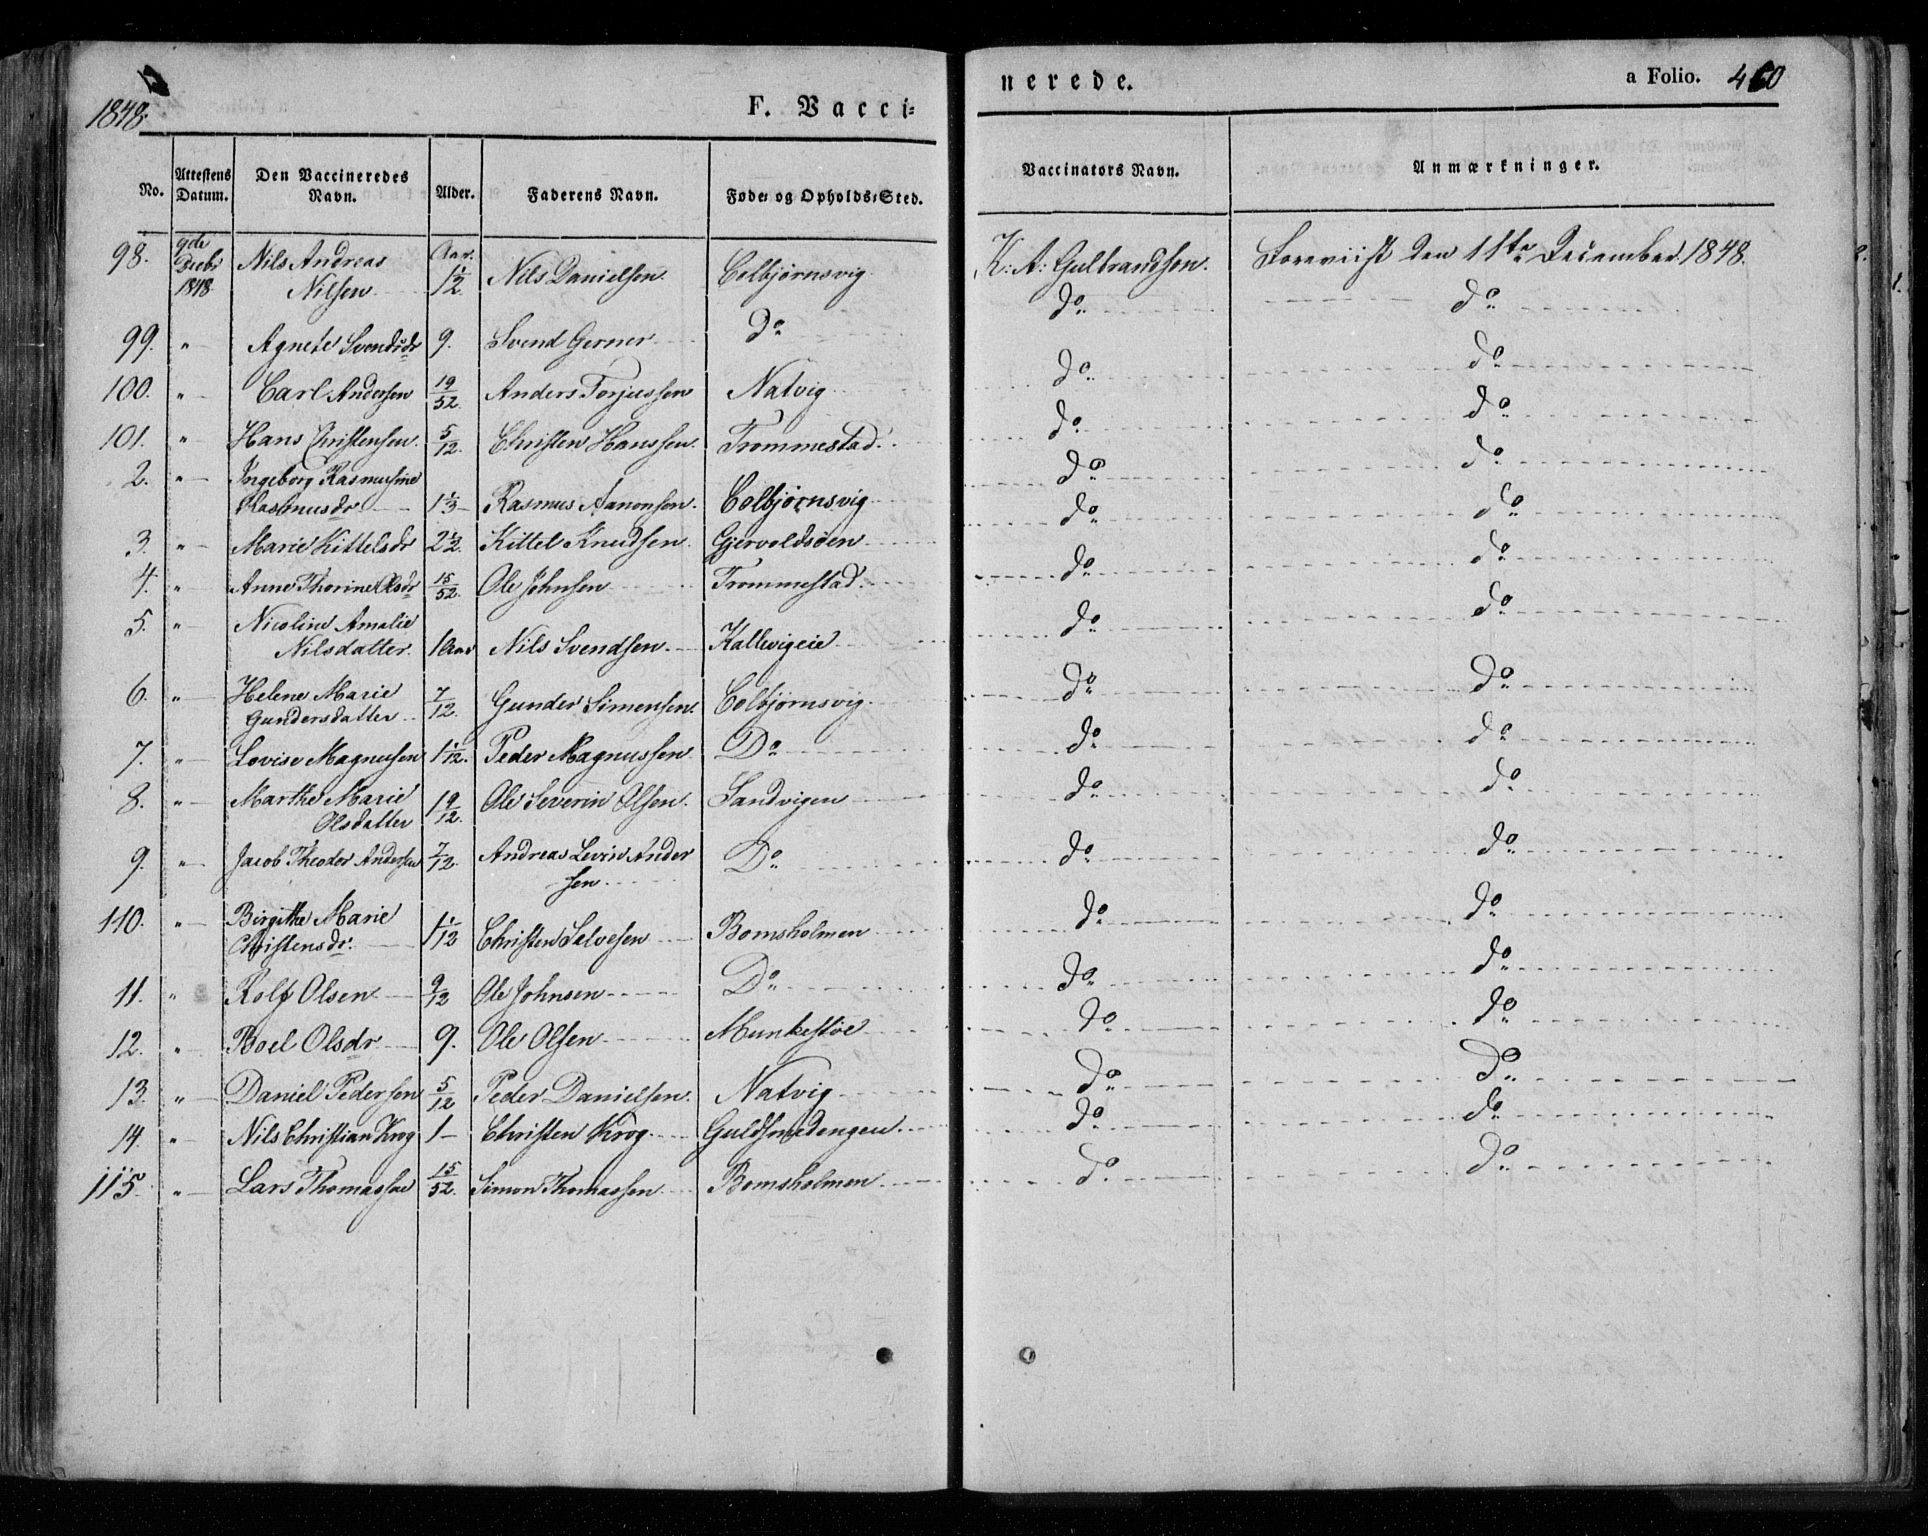 1848.
F. Vacci=
nerede.
a Folio. 460
No. Attestens Datum. Den Vaccineredes Navn. Alder. Faderens Navn. Føde= og Opholds=Sted. Vaccinators Navn. Anmærkninger.
98. 9de Decbr 1848 Nils Andreas Aar. Nils Danielsen. Colbjørnsvig K: A: Gulbrandsen. Foreviist den 11te December 1848.
Nilsen 1½ do do
99. " Agnete Svendsdr 9. Svend Gerner Do do do
100. " Carl Andersen 19/52 Anders Torjussen Natvig do do
101. " Hans Christensen. 5/12. Christen Hanssen. Trommestad. do do
2. " Ingeborg Rasmusine
Rasmusdr 1⅓ Rasmus Aanonsen. Colbjørnsvig do do
3. " Marie Kittelsdr 2½. Kittel Knudsen Gjervoldsøen do do
4. " Anne Thorine Olsdr 15/52. Ole Johnsen Trommestad. do do
5. " Nicoline Amalie
Nilsdatter. 1 Aar Nils Svendsen. Kallevigeie do do
6. " Helene Marie
Gundersdatter 7/12. Gunder Simensen. Colbjørnsvig do do
7. " Lovise Magnussen 1 1/12. Peder Magnussen Do do do
8. " Marthe Marie
Olsdatter 19/12. Ole Severin Olsen. Sandvigen do do
9. " Jacob Theodor Andersen 7/12. Andreas Levin Ander
sen Do do do
110. " Birgithe Marie
Christensdr. 1 1/12 Christen Salvesen Bomsholmen do do
11. " Rolf Olsen 9/12 Ole Johnsen Do do do
12. " Boel Olsdr 9. Ole Olsen Munkestøe do do
13. " Daniel Pedersen 5/12 Peder Danielsen. Natvig do do
14. " Nils Christian Krog 1 Christen Krog. Guldsmedengen. do do
115. " Lars Thomassen 15/52. Simon Thomassen Bomsholmen do